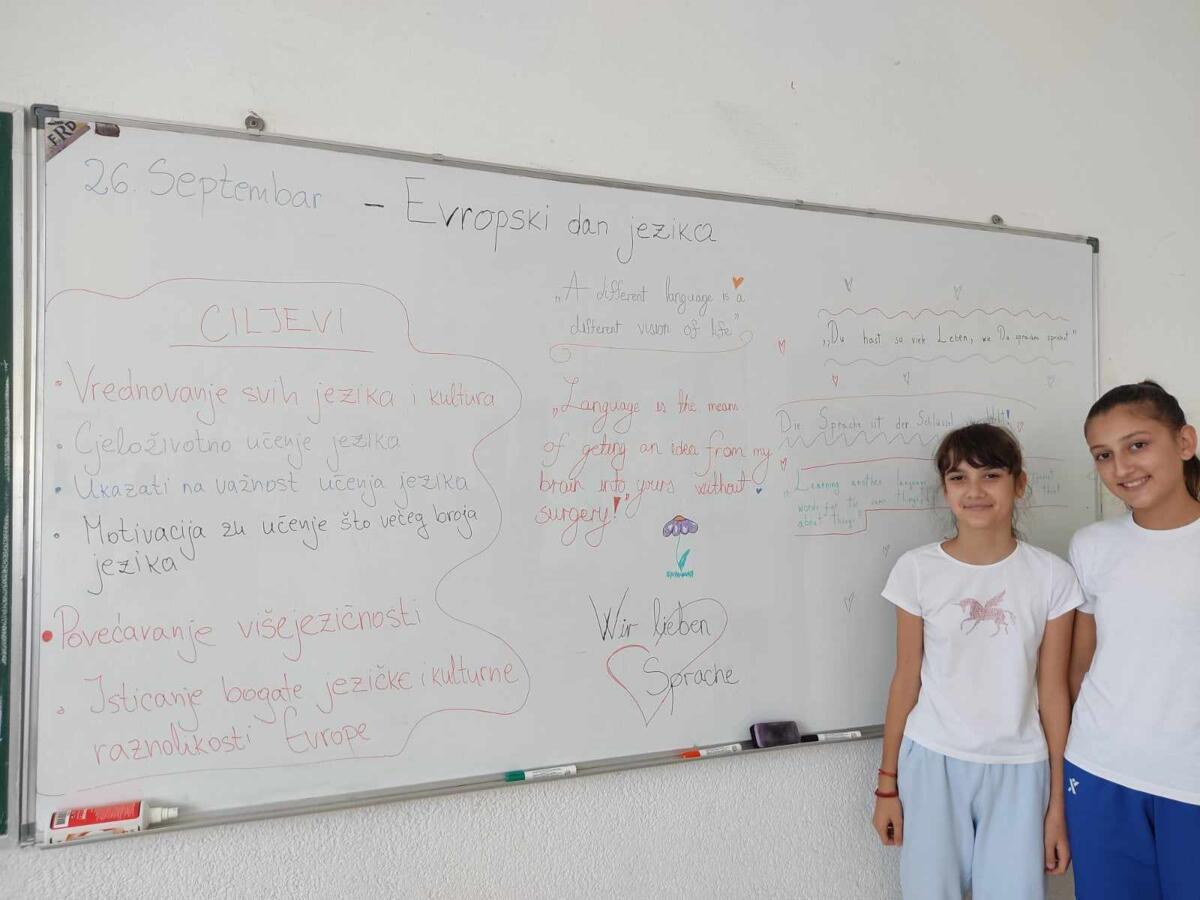 26. Septembar - Evropski dan jezika
CILJEVI
• Vrednovanje svih jezika i kultura
• Cjeloživotno učenje jezika
• Ukazati na važnost učenja jezika
• Motivacija za učenje što većeg broja
jezika
• Povećavanje višejezičnosti
• Isticanje bogate jezičke i kulturne
raznolikosti Evrope
„A different language is a
different vision of life"
„Language is the means
of geting an idea from my
brain into yours without
surgery!"
Wir lieben
Sprache
„Du hast so viele Leben, wie Du sprachen sprichst"
Die Sprache ist der Schlüssel
„Learning another language
words for the same things
about things